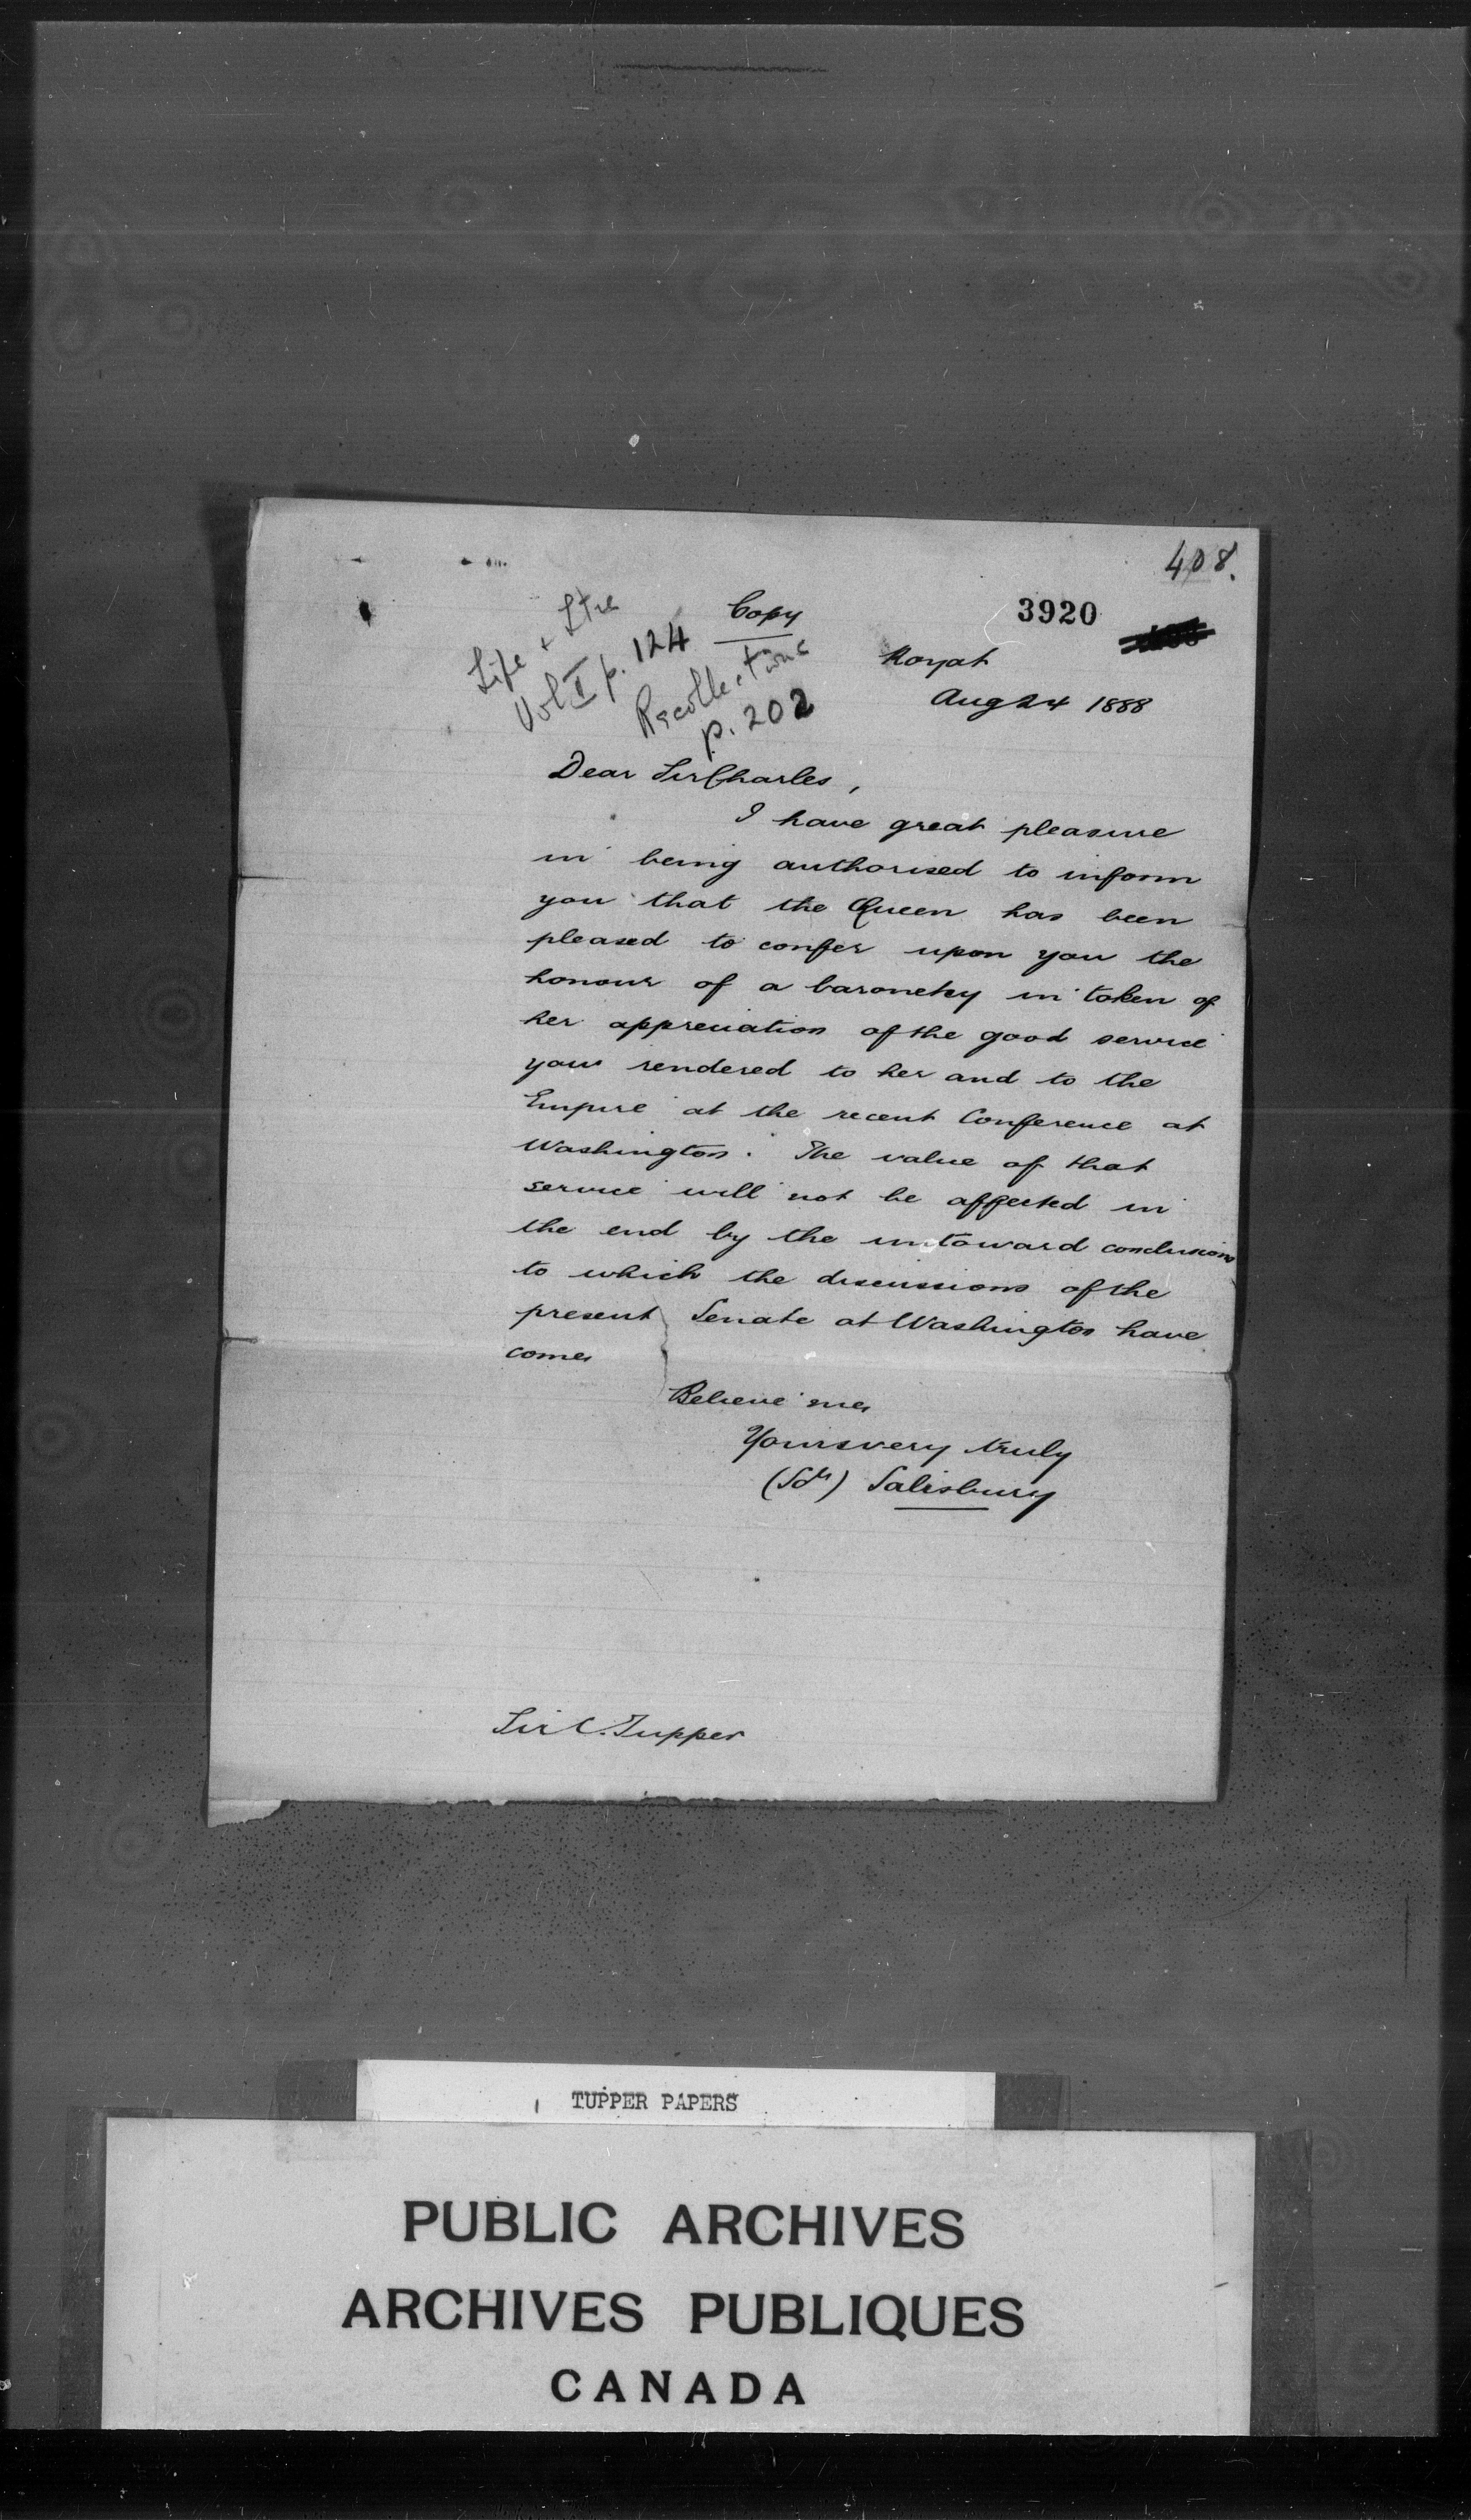 408.
3920
Copy
Life + Ltrs
Vol II p. 124
Recollections
p. 202
Royat
Aug 24 1888
Dear Sir Charles,
I have great pleasure
in being authorised to inform
you that the Queen has been
pleased to confer upon you the
honour of a baronetcy in token of
her appreciation of the good service
you rendered to her and to the
Empire at the recent Conference at
Washington. The value of that
service will not be affected in
the end by the untoward conclusions
to which the discussions of the
present Senate at Washington have
come.
Believe me,
Yours very truly
(Sd) Salisbury
Sir C. Tupper
TUPPER PAPERS
PUBLIC ARCHIVES
ARCHIVES PUBLIQUES
CANADA